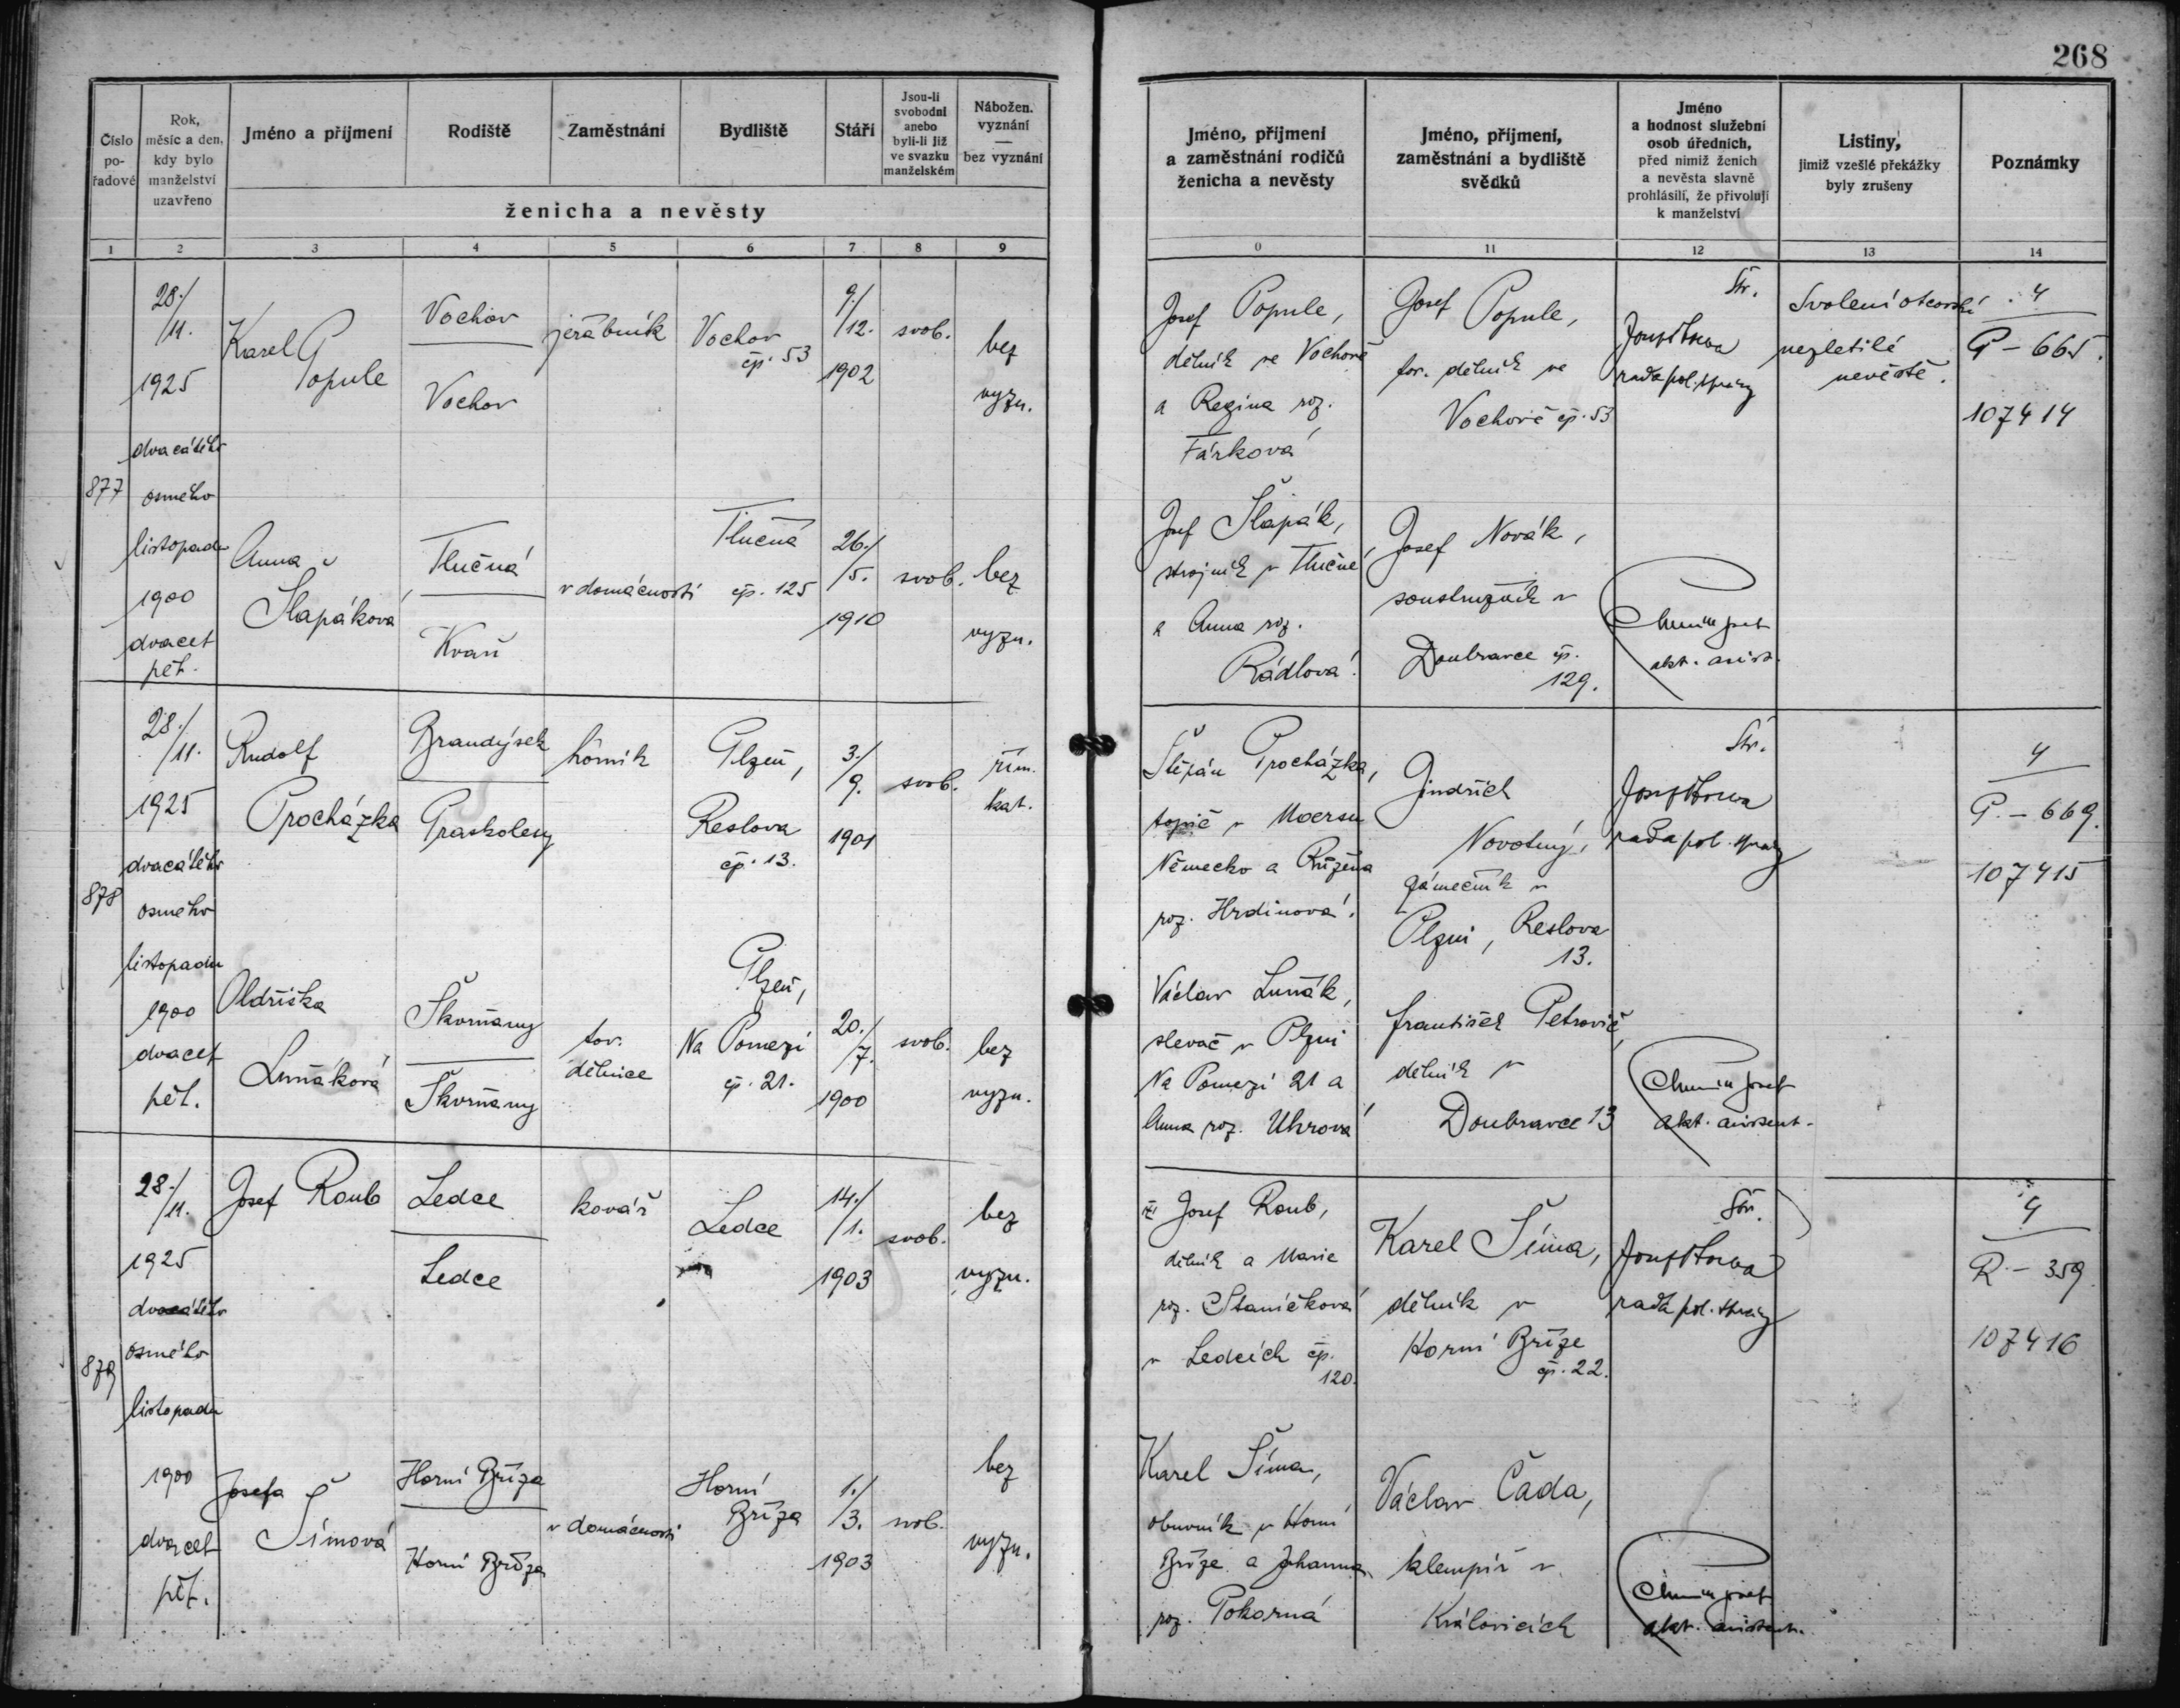 268
Číslo pořadové
Rok, měsíc a den, kdy bylo manželství uzavřeno
Jméno a příjmení
Rodiště
Zaměstnání
Bydliště
Stáří
Jsou-li svobodni anebo byli-li již ve svazku manželském
Nábožen. vyznání — bez vyznání
ženicha a nevěsty
Jméno, příjmení a zaměstnání rodičů ženicha a nevěsty
Jméno, příjmení, zaměstnání a bydliště svědků
Jméno a hodnost služební osob úředních, před nimiž ženich a nevěsta slavně prohlásili, že přivolují k manželství
Listiny, jimiž vzešlé překážky byly zrušeny
Poznámky
1 2 3 4 5 6 7 8 9 0 11 12 13 14
877
28./11.
1925
dvacátého
osmého
listopadu
1900
dvacet
pět.
Karel
Popule
Vochov
Vochov
jeřábník
Vochov
čp. 53
9./12.
1902
svob.
bez
vyzn.
Josef Popule,
dělník ve Vochově
a Regina roz.
Fárková
Josef Popule,
tov. dělník ve
Vochově čp. 53
Str.
rada pol. správy
Svolení otcovské
nezletilé
nevěstě.
4
P - 665.
107414
Anna
Šlapáková
Tlučná
Tlučná
čp. 125
v domácnosti
26./5.
1910
svob.
bez
vyzn.
Josef Šlapák,
strojník v Tlučné
a Anna roz.
Rádlová.
Josef Novák,
soustružník v
Doubravce čp.
129.
akt. asist.
878
28./11.
1925
dvacátého
osmého
listopadu
1900
dvacet
pět.
Rudolf
Procházka
Brandýsek
Praskolesy
horník
Plzeň,
Reslova
čp. 13.
3./9.
1901
svob.
řím.
kat.
Štěpán Procházka,
topič v Moersu
Německo a Růžena
roz. Hrdinová.
Jindřich
Novotný,
zámečník v
Plzni, Reslova
13.
Str.
rada pol. správy
4
P. - 669.
107415
Oldřiška
Luňáková
Škvrňany
Škvrňany
tov.
dělnice
Plzeň,
Na Pomezí
č. 21.
20./7.
1900
svob.
bez
vyzn.
Václav Luňák,
slevač v Plzni
Na Pomezí 21 a
Anna roz. Uhrová
František Petrovič,
dělník v
Doubravce 13
akt. assistent.
879
28./11.
1925
dvacátého
osmého
listopadu
1900
dvacet
pět.
Josef Roub
Ledce
Ledce
kovář
Ledce
14./1.
1903
svob.
bez
vyzn.
Josef Roub,
dělník a Marie
roz. Staničková
v Ledcích čp.
120.
Karel Šíma,
dělník v
Horní Bříze
čp. 22.
Str.
rada pol. správy
4
R. - 359
107416
Josefa
Šímová
Horní Bříza
Horní Bříza
v domácnosti
Horní
Bříza
1./3.
1903
svob.
bez
vyzn.
Karel Šíma,
obuvník v Horní
Bříze a Johanna
roz. Pokorná
Václav Čada,
klempíř v
Kralovicích
akt. assistent.